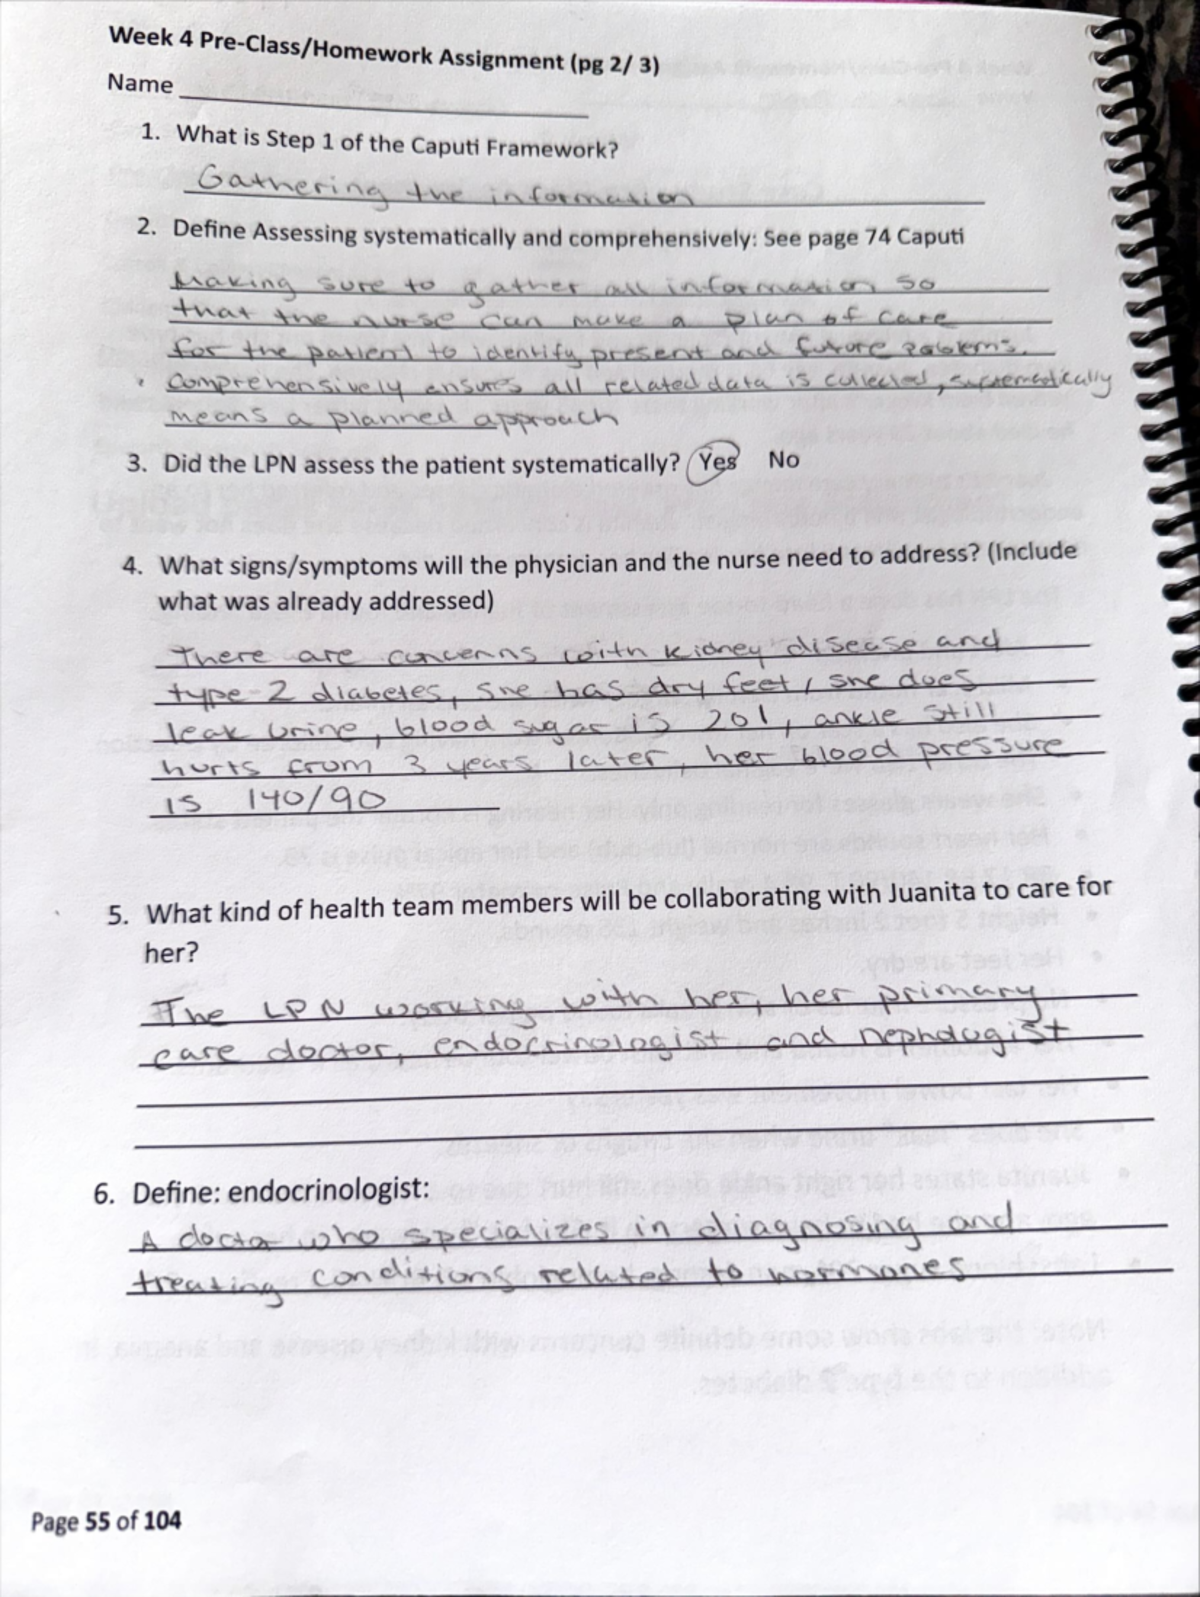 Week 4 Pre-Class/Homework Assignment (pg 2/ 3)
Name
1. What is Step 1 of the Caputi Framework?
Gathering the information
2. Define Assessing systematically and comprehensively: See page 74 Caputi
Making sure to gather all information so
that the nurse can make a plan of care
for the patient to identify present and future problems.
comprehensively ensures all related data is collected, systematically
means a planned approach
3. Did the LPN assess the patient systematically? Yes No
4. What signs/symptoms will the physician and the nurse need to address? (Include
what was already addressed)
There are concerns with kidney disease and
type 2 diabetes, she has dry feet, she does
leak urine, blood sugar is 201, ankle still
hurts from 3 years later, her blood pressure
is 140/90
5. What kind of health team members will be collaborating with Juanita to care for
her?
The LPN working with her, her primary
care doctor, endocrinologist and nephologist
6. Define: endocrinologist:
A doctor who specializes in diagnosing and
treating conditions related to hormones
Page 55 of 104